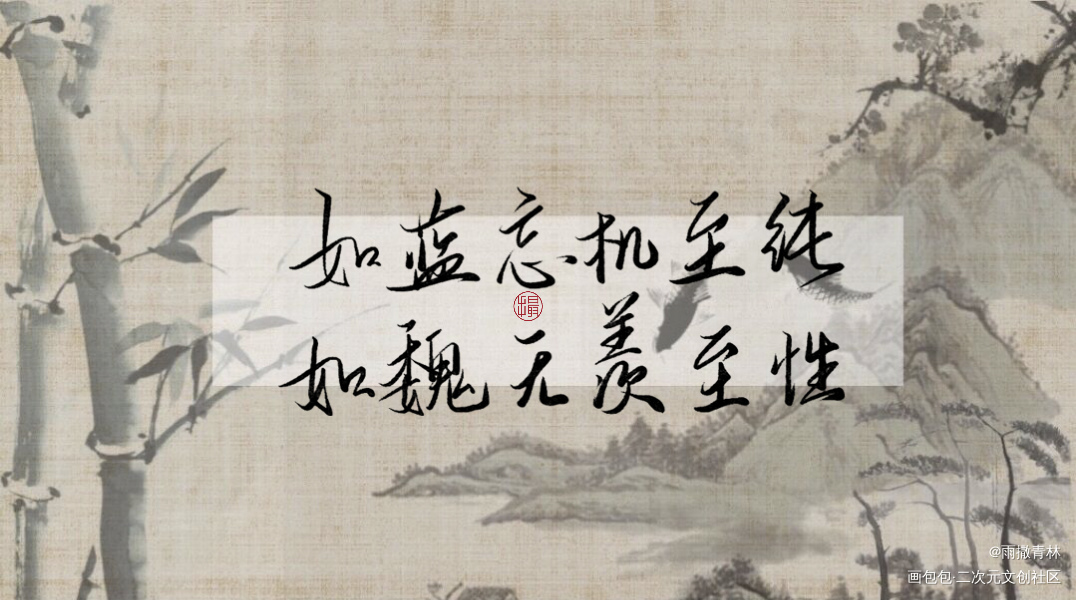 如蓝忘机至纯
如魏无羡至性
@雨撒青林
画包包·二次元文创社区